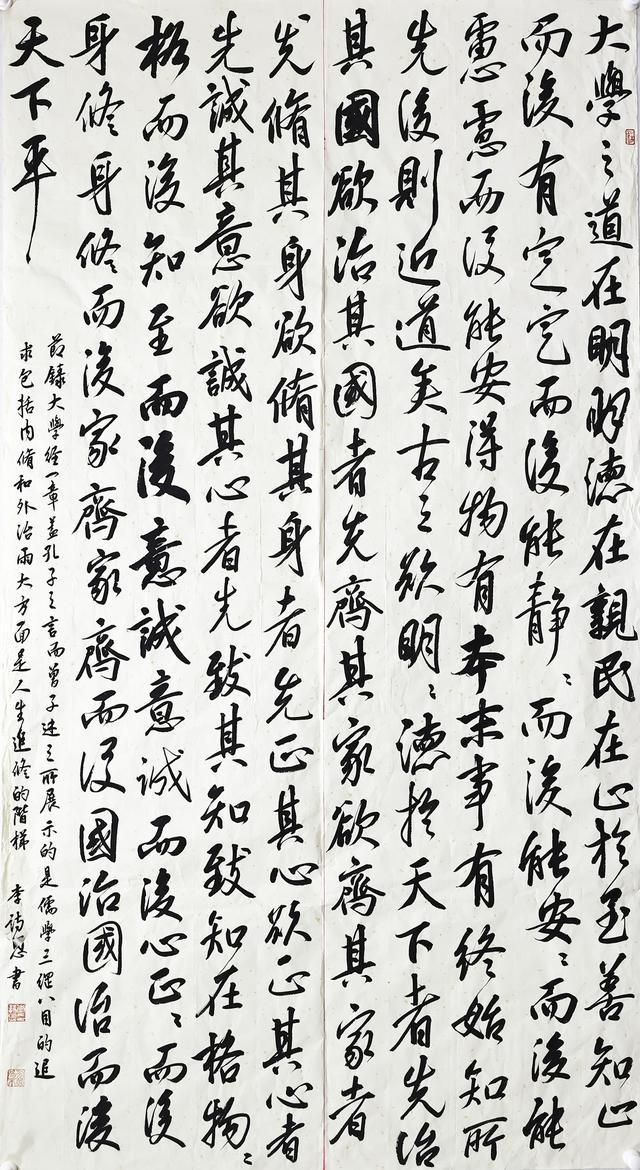 大學之道在明明德在親民在止於至善知止
而後有定定而後能靜〻而後能安〻而後能
慮慮而後能安得物有本末事有終始知所
先後則近道矣古之欲明〻德於天下者先治
其國欲治其國者先齊其家欲齊其家者
先脩其身欲脩其身者先正其心欲正其心者
先誠其意欲誠其心者先致其知致知在格物〻
格而後知至而後意誠意誠而後心正〻而後
身修身修而後家齊家齊而後國治國治而後
天下平
節錄大學經一章蓋孔子之言而曾子述之所展示的是儒學三綱八目的追
求包括內脩和外治兩大方面是人生進修的階梯 李詩書